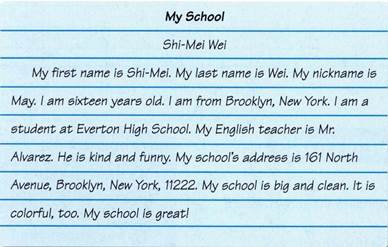 My School
Shi-Mei Wei
My first name is Shi-Mei. My last name is Wei. My nickname is
May. I am sixteen years old. I am from Brooklyn, New York. I am a
student at Everton High School. My English teacher is Mr.
Alvarez. He is kind and funny. My school's address is 161 North
Avenue, Brooklyn, New York, 11222. My school is big and clean. It is
colorful, too. My school is great!